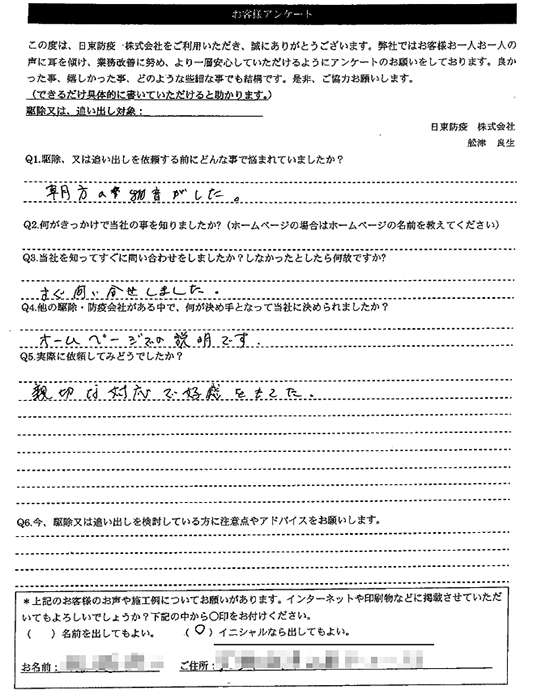 お客様アンケート
この度は、日東防疫 株式会社をご利用いただき、誠にありがとうございます。弊社ではお客様お一人お一人の
声に耳を傾け、業務改善に努め、より一層安心していただけるようにアンケートのお願いをしております。良か
った事、嬉しかった事、どのような些細な事でも結構です。是非、ご協力お願いします。
(できるだけ具体的に書いていただけると助かります。)
駆除又は、追い出し対象:
日東防疫 株式会社
舩津 良生
Q1.駆除、又は追い出しを依頼する前にどんな事で悩まれていましたか?
朝方の物音がした。
Q2.何がきっかけで当社の事を知りましたか?(ホームページの場合はホームページの名前を教えてください)
Q3.当社を知ってすぐに問い合わせをしましたか?しなかったとしたら何故ですか?
すぐ問い合せしました。
Q4.他の駆除・防疫会社がある中で、何が決め手となって当社に決められましたか?
ホームページでの説明です.
Q5.実際に依頼してみどうでしたか?
親切な対応で好感をもてた。
Q6.今、駆除又は追い出しを検討している方に注意点やアドバイスをお願いします。
*上記のお客様のお声や施工例についてお願いがあります。インターネットや印刷物などに掲載させていただ
いてもよろしいでしょうか?下記の中から〇印をお付けください。
( )名前を出してもよい。 (○)イニシャルなら出してもよい。
お名前: ご住所: